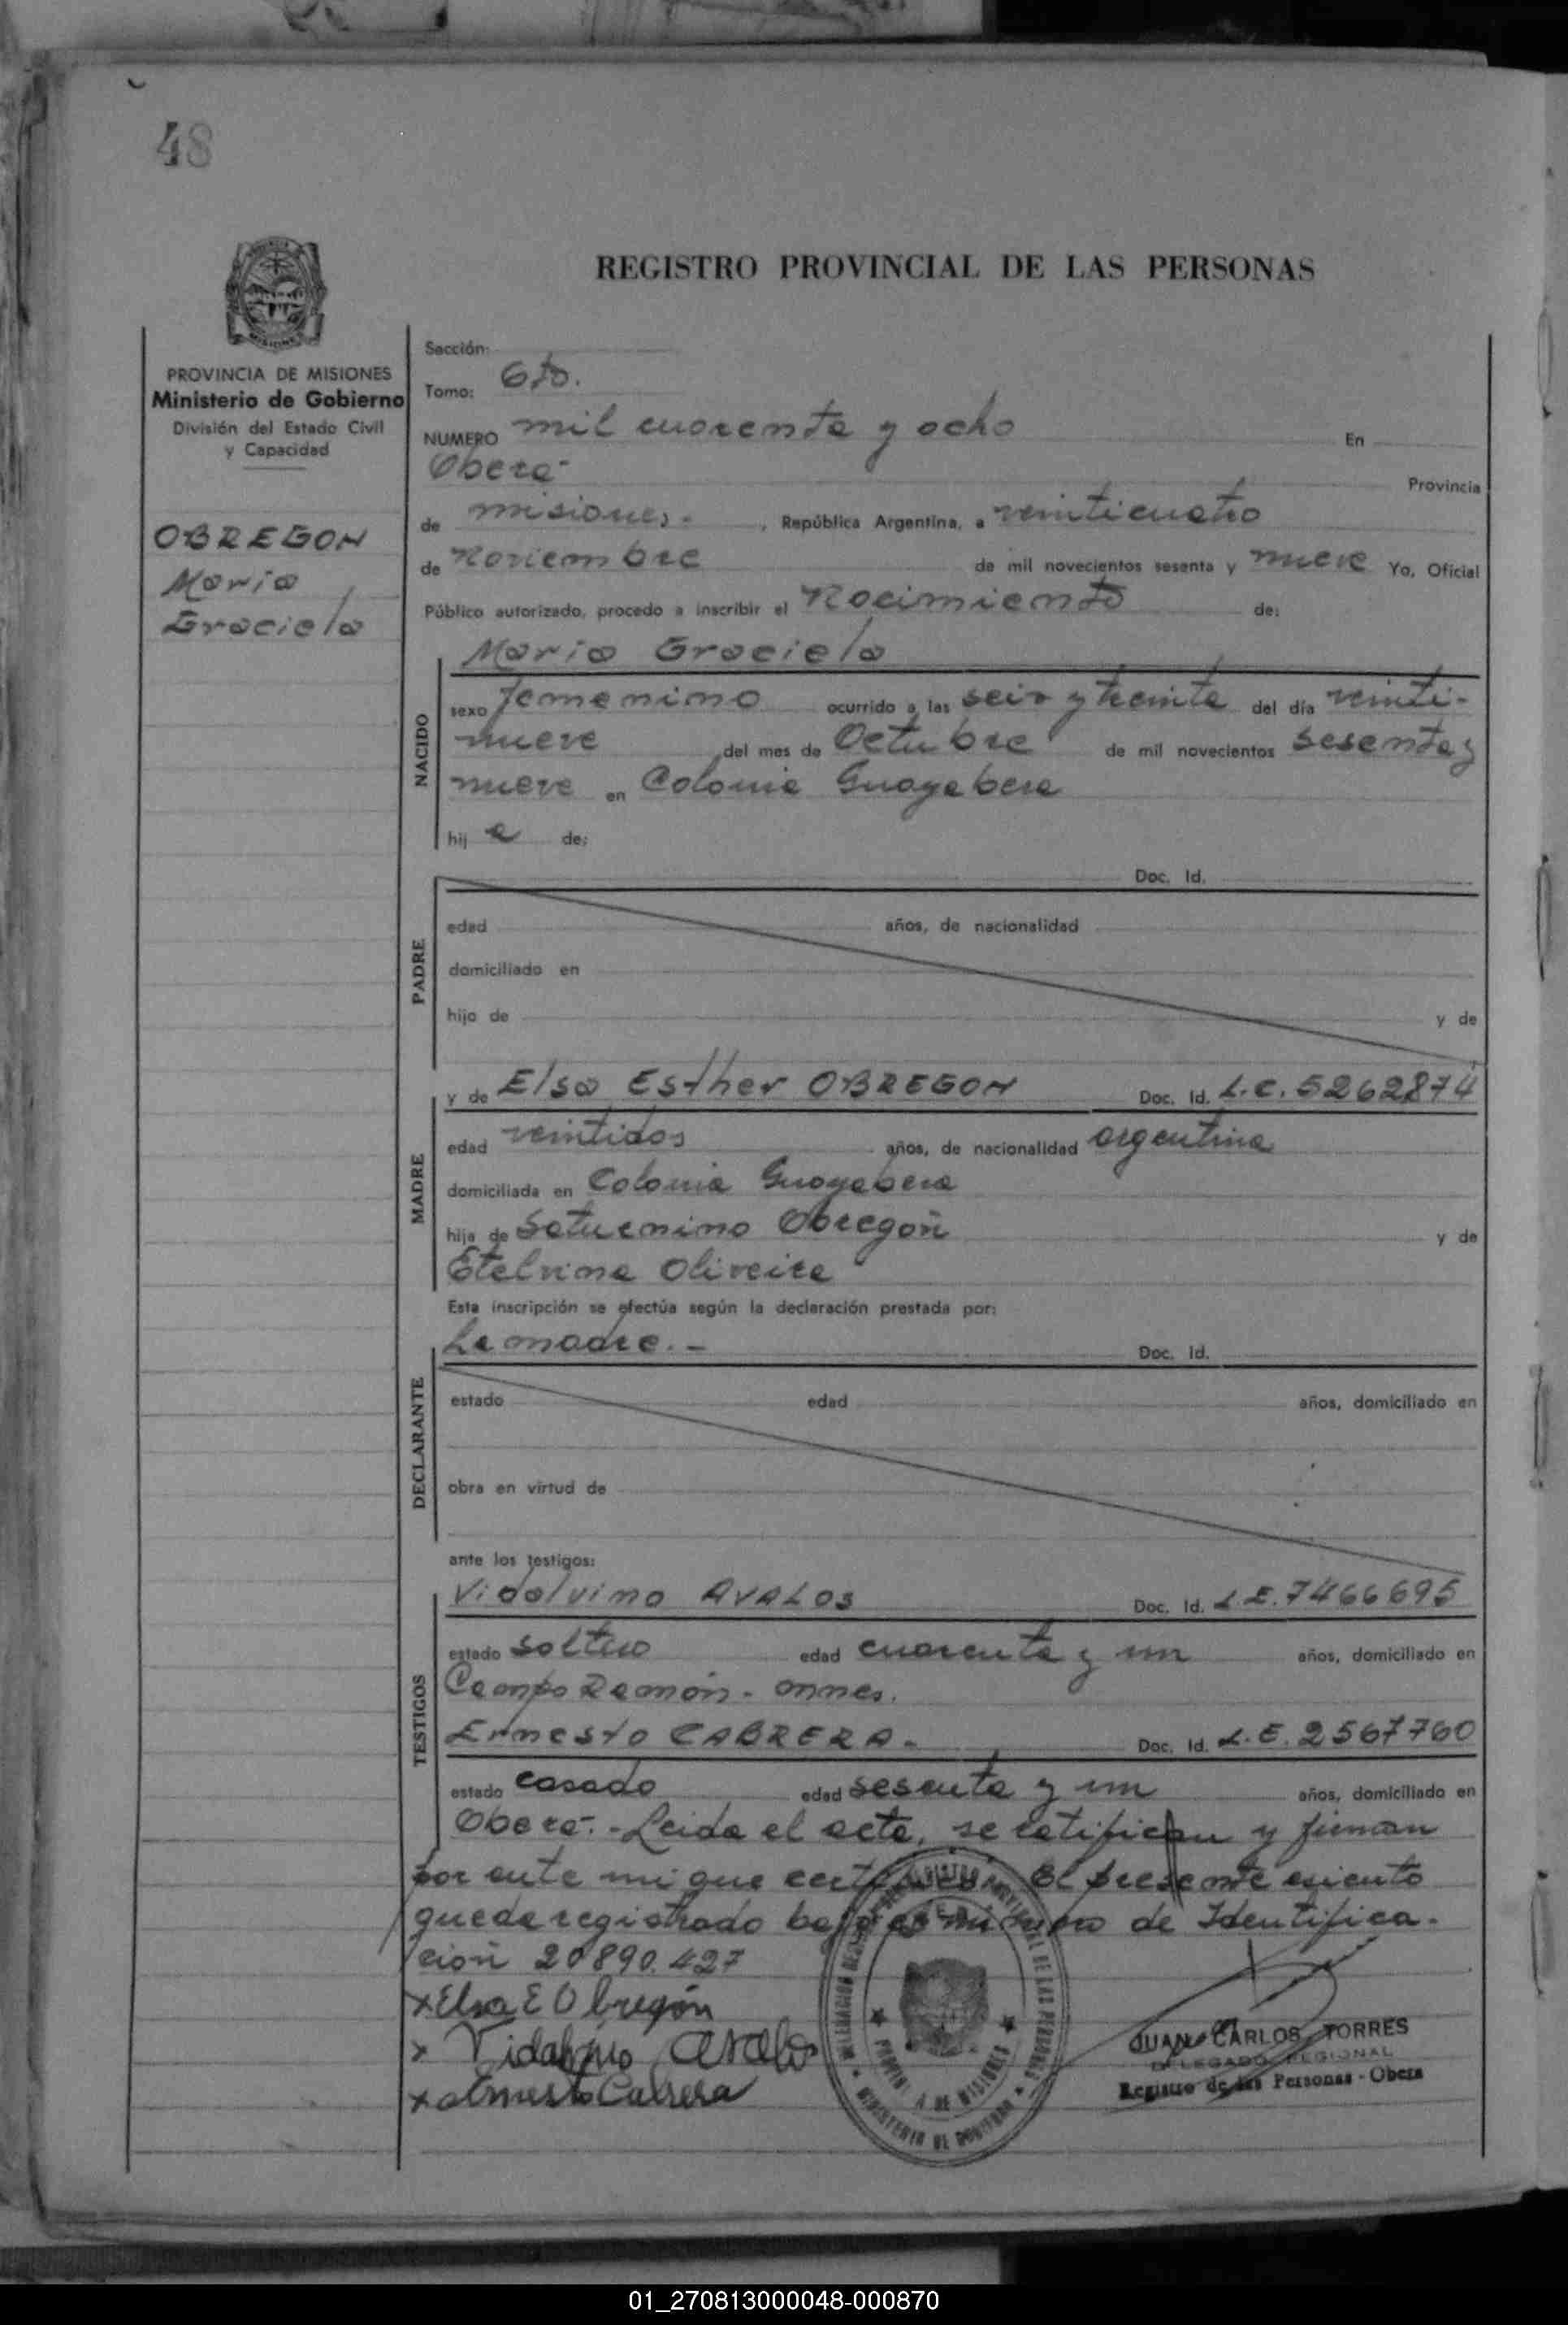 48
REGISTRO PROVINCIAL DE LAS PERSONAS
PROVINCIA DE MISIONES
Ministerio de Gobierno
División del Estado Civil
y Capacidad
OBREGON
Maria
Graciela
Sección:
Tomo: 6to.
NUMERO mil cuarenta y ocho En
Oberá- Provincia
de misiones.- , República Argentina, a veinticuatro
de Noviembre de mil novecientos sesenta y nueve Yo, Oficial
Público autorizado, procedo a inscribir el Nacimiento de:
Maria Graciela
NACIDO
sexo femenino ocurrido a las seis y treinta del día veinti-
nueve del mes de Octubre de mil novecientos sesenta y
nueve en Colonia Guayabera
hij a de:
PADRE
Doc. Id.
edad años, de nacionalidad
domiciliado en
hijo de y de
MADRE
y de Elsa Esther OBREGON Doc. Id. L.C. 5262874
edad veintidos años, de nacionalidad argentina
domiciliada en Colonia Guayabera
hija de Saturnino Obregón y de
Etelvina Oliveira
Esta inscripción se efectúa según la declaración prestada por:
La madre.- Doc. Id.
DECLARANTE
estado edad años, domiciliado en
obra en virtud de
ante los testigos:
TESTIGOS
Vidalvino AVALOS Doc. Id. L.E. 7466695
estado soltero edad cuarenta y un años, domiciliado en
Campo Ramón - mnes.
Ernesto CABRERA.- Doc. Id. L.E. 2567760
estado casado edad sesenta y un años, domiciliado en
Oberá.- Leida el acta, se ratifican y firman
por ante mi que certifico. El presente asiento
queda registrado bajo el número de Identifica-
ción 20890.427
x Elsa E Obregón
x Vidalvino Avalos
x Ernesto Cabrera
DELEGACION REGISTRO PROVINCIAL DE LAS PERSONAS
PROVINCIA DE MISIONES
MINISTERIO DE GOBIERNO
JUAN CARLOS TORRES
DELEGADO REGIONAL
Registro de las Personas - Obera
01_270813000048-000870